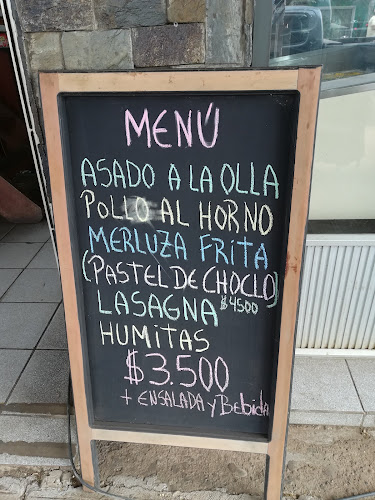 MENÚ
ASADO A LA OLLA
POLLO AL HORNO
MERLUZA FRITA
(PASTEL DE CHOCLO)
LASAGNA $4500
HUMITAS
$3.500
+ ENSALADA y Bebida